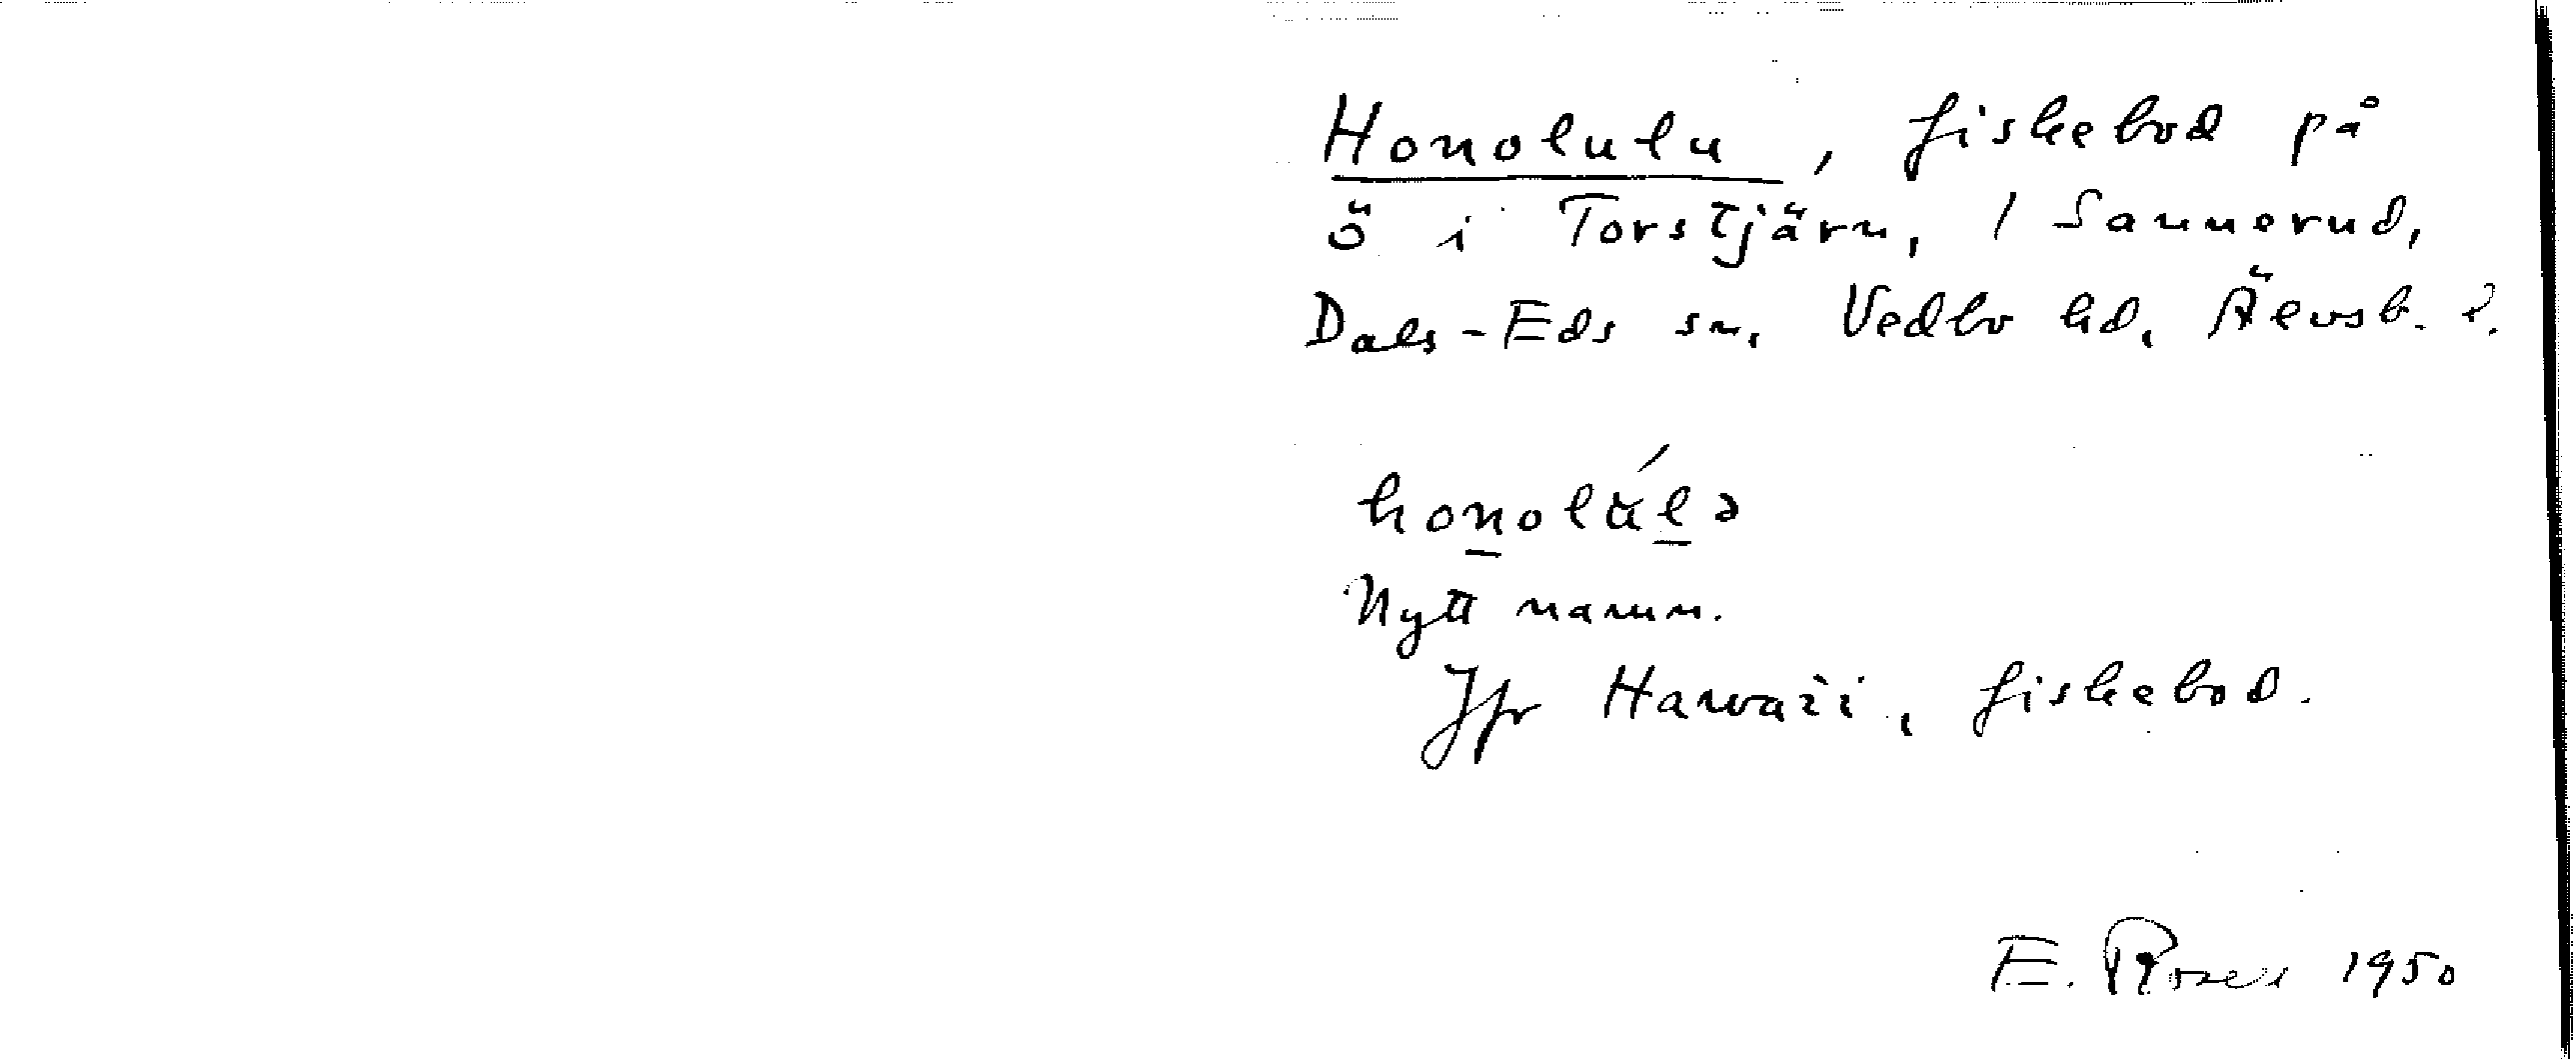 Honolulu, fiskebod på
ö i Torstjärn, 1 Sannerud,
Dals-Eds sn, Vedbo hd, Älvsb. l.
Nytt namn.
Jfr Hawaii, fiskebod.
E. Rosen 1950